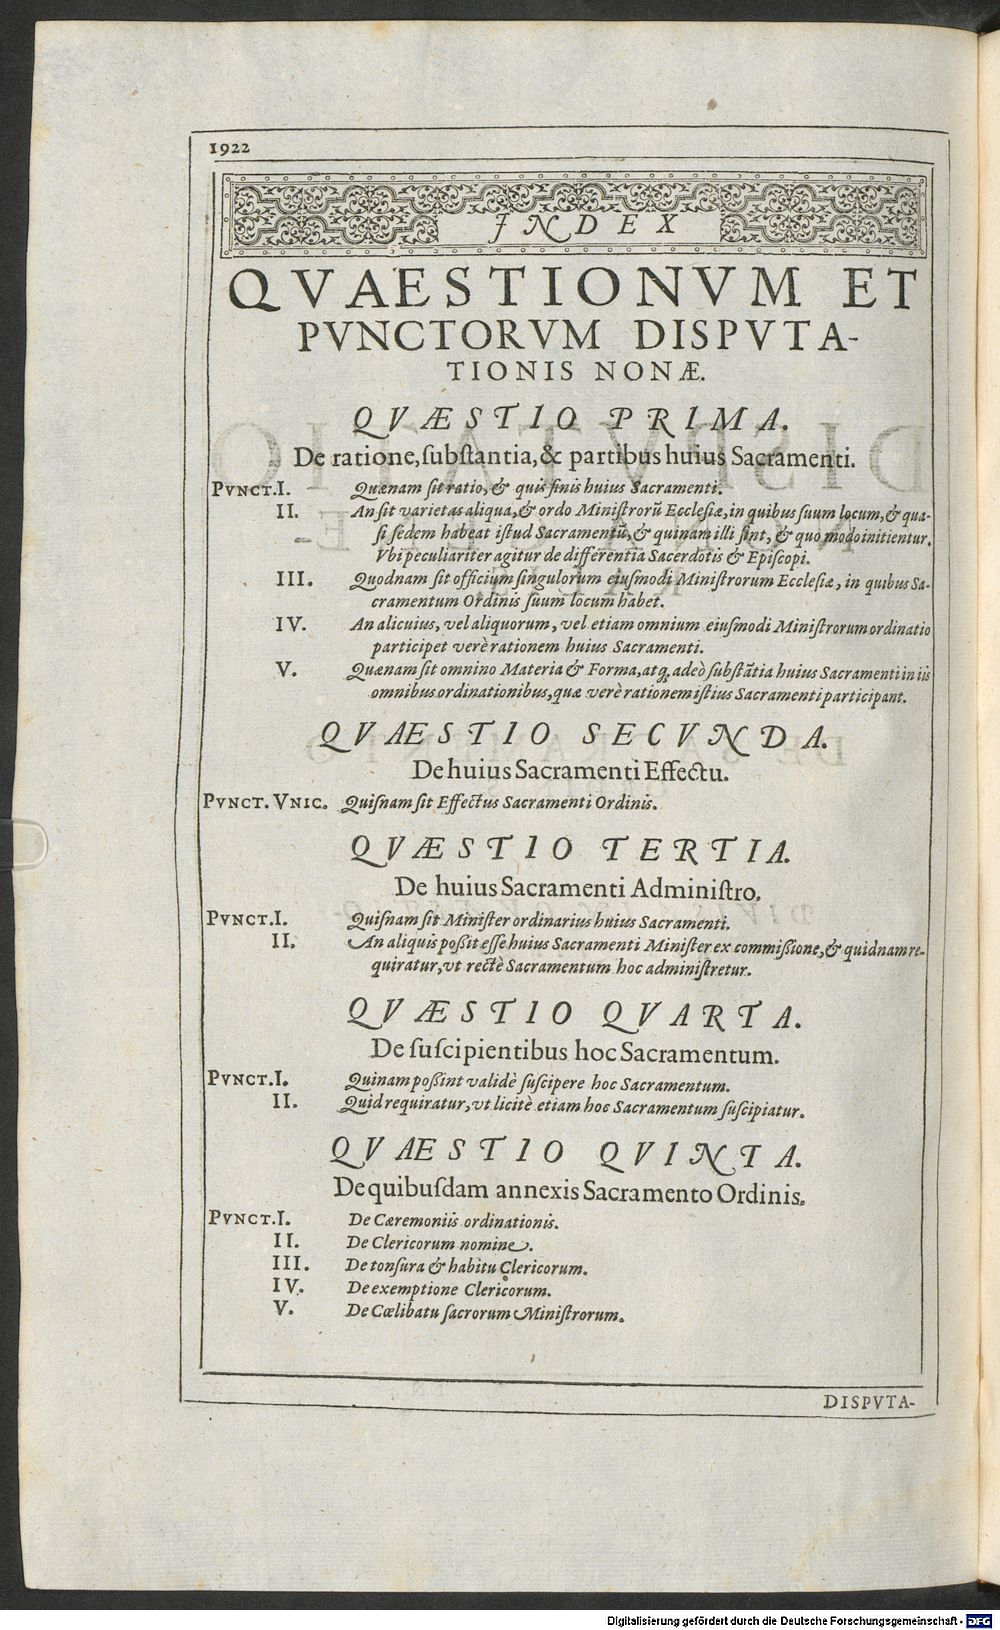 1922
INDEX
QVAESTIONVM ET
PVNCTORVM DISPVTA-
TIONIS NONÆ.
QVÆSTIO PRIMA.
De ratione, ſubſtantia, & partibus huius Sacramenti.
PVNCT. I. Quænam ſit ratio, & quis finis huius Sacramenti.
II. An ſit varietas aliqua, & ordo Miniſtrorũ Eccleſiæ, in quibus ſuum locum, & qua-
ſi ſedem habeat iſtud Sacramentũ, & quinam illi ſint, & quo modo initientur.
Vbi peculiariter agitur de differentia Sacerdotis & Epiſcopi.
III. Quodnam ſit officium ſingulorum eiuſmodi Miniſtrorum Eccleſiæ, in quibus Sa-
cramentum Ordinis ſuum locum habet.
IV. An alicuius, vel aliquorum, vel etiam omnium eiuſmodi Miniſtrorum ordinatio
participet verè rationem huius Sacramenti.
V. Quænam ſit omnino Materia & Forma, atq, adeò ſubſtãtia huius Sacramenti in iis
omnibus ordinationibus, quæ verè rationem iſtius Sacramenti participant.
QVAESTIO SECVNDA.
De huius Sacramenti Effectu.
PVNCT. VNIC. Quiſnam ſit Effectus Sacramenti Ordinis.
QVÆSTIO TERTIA.
De huius Sacramenti Adminiſtro.
PVNCT. I. Quiſnam ſit Miniſter ordinarius huius Sacramenti.
II. An aliquis poßit eſſe huius Sacramenti Miniſter ex commißione, & quidnam re-
quiratur, vt rectè Sacramentum hoc adminiſtretur.
QVÆSTIO QVARTA.
De ſuſcipientibus hoc Sacramentum.
PVNCT. I. Quinam poßint validè ſuſcipere hoc Sacramentum.
II. Quid requiratur, vt licitè etiam hoc Sacramentum ſuſcipiatur.
QVAESTIO QVINTA.
De quibuſdam annexis Sacramento Ordinis.
PVNCT. I. De Cæremoniis ordinationis.
II. De Clericorum nomine.
III. De tonſura & habitu Clericorum.
IV. De exemptione Clericorum.
V. De Cœlibatu ſacrorum Miniſtrorum.
DISPVTA-
Digitalisierung gefördert durch die Deutsche Forschungsgemeinschaft - DFG